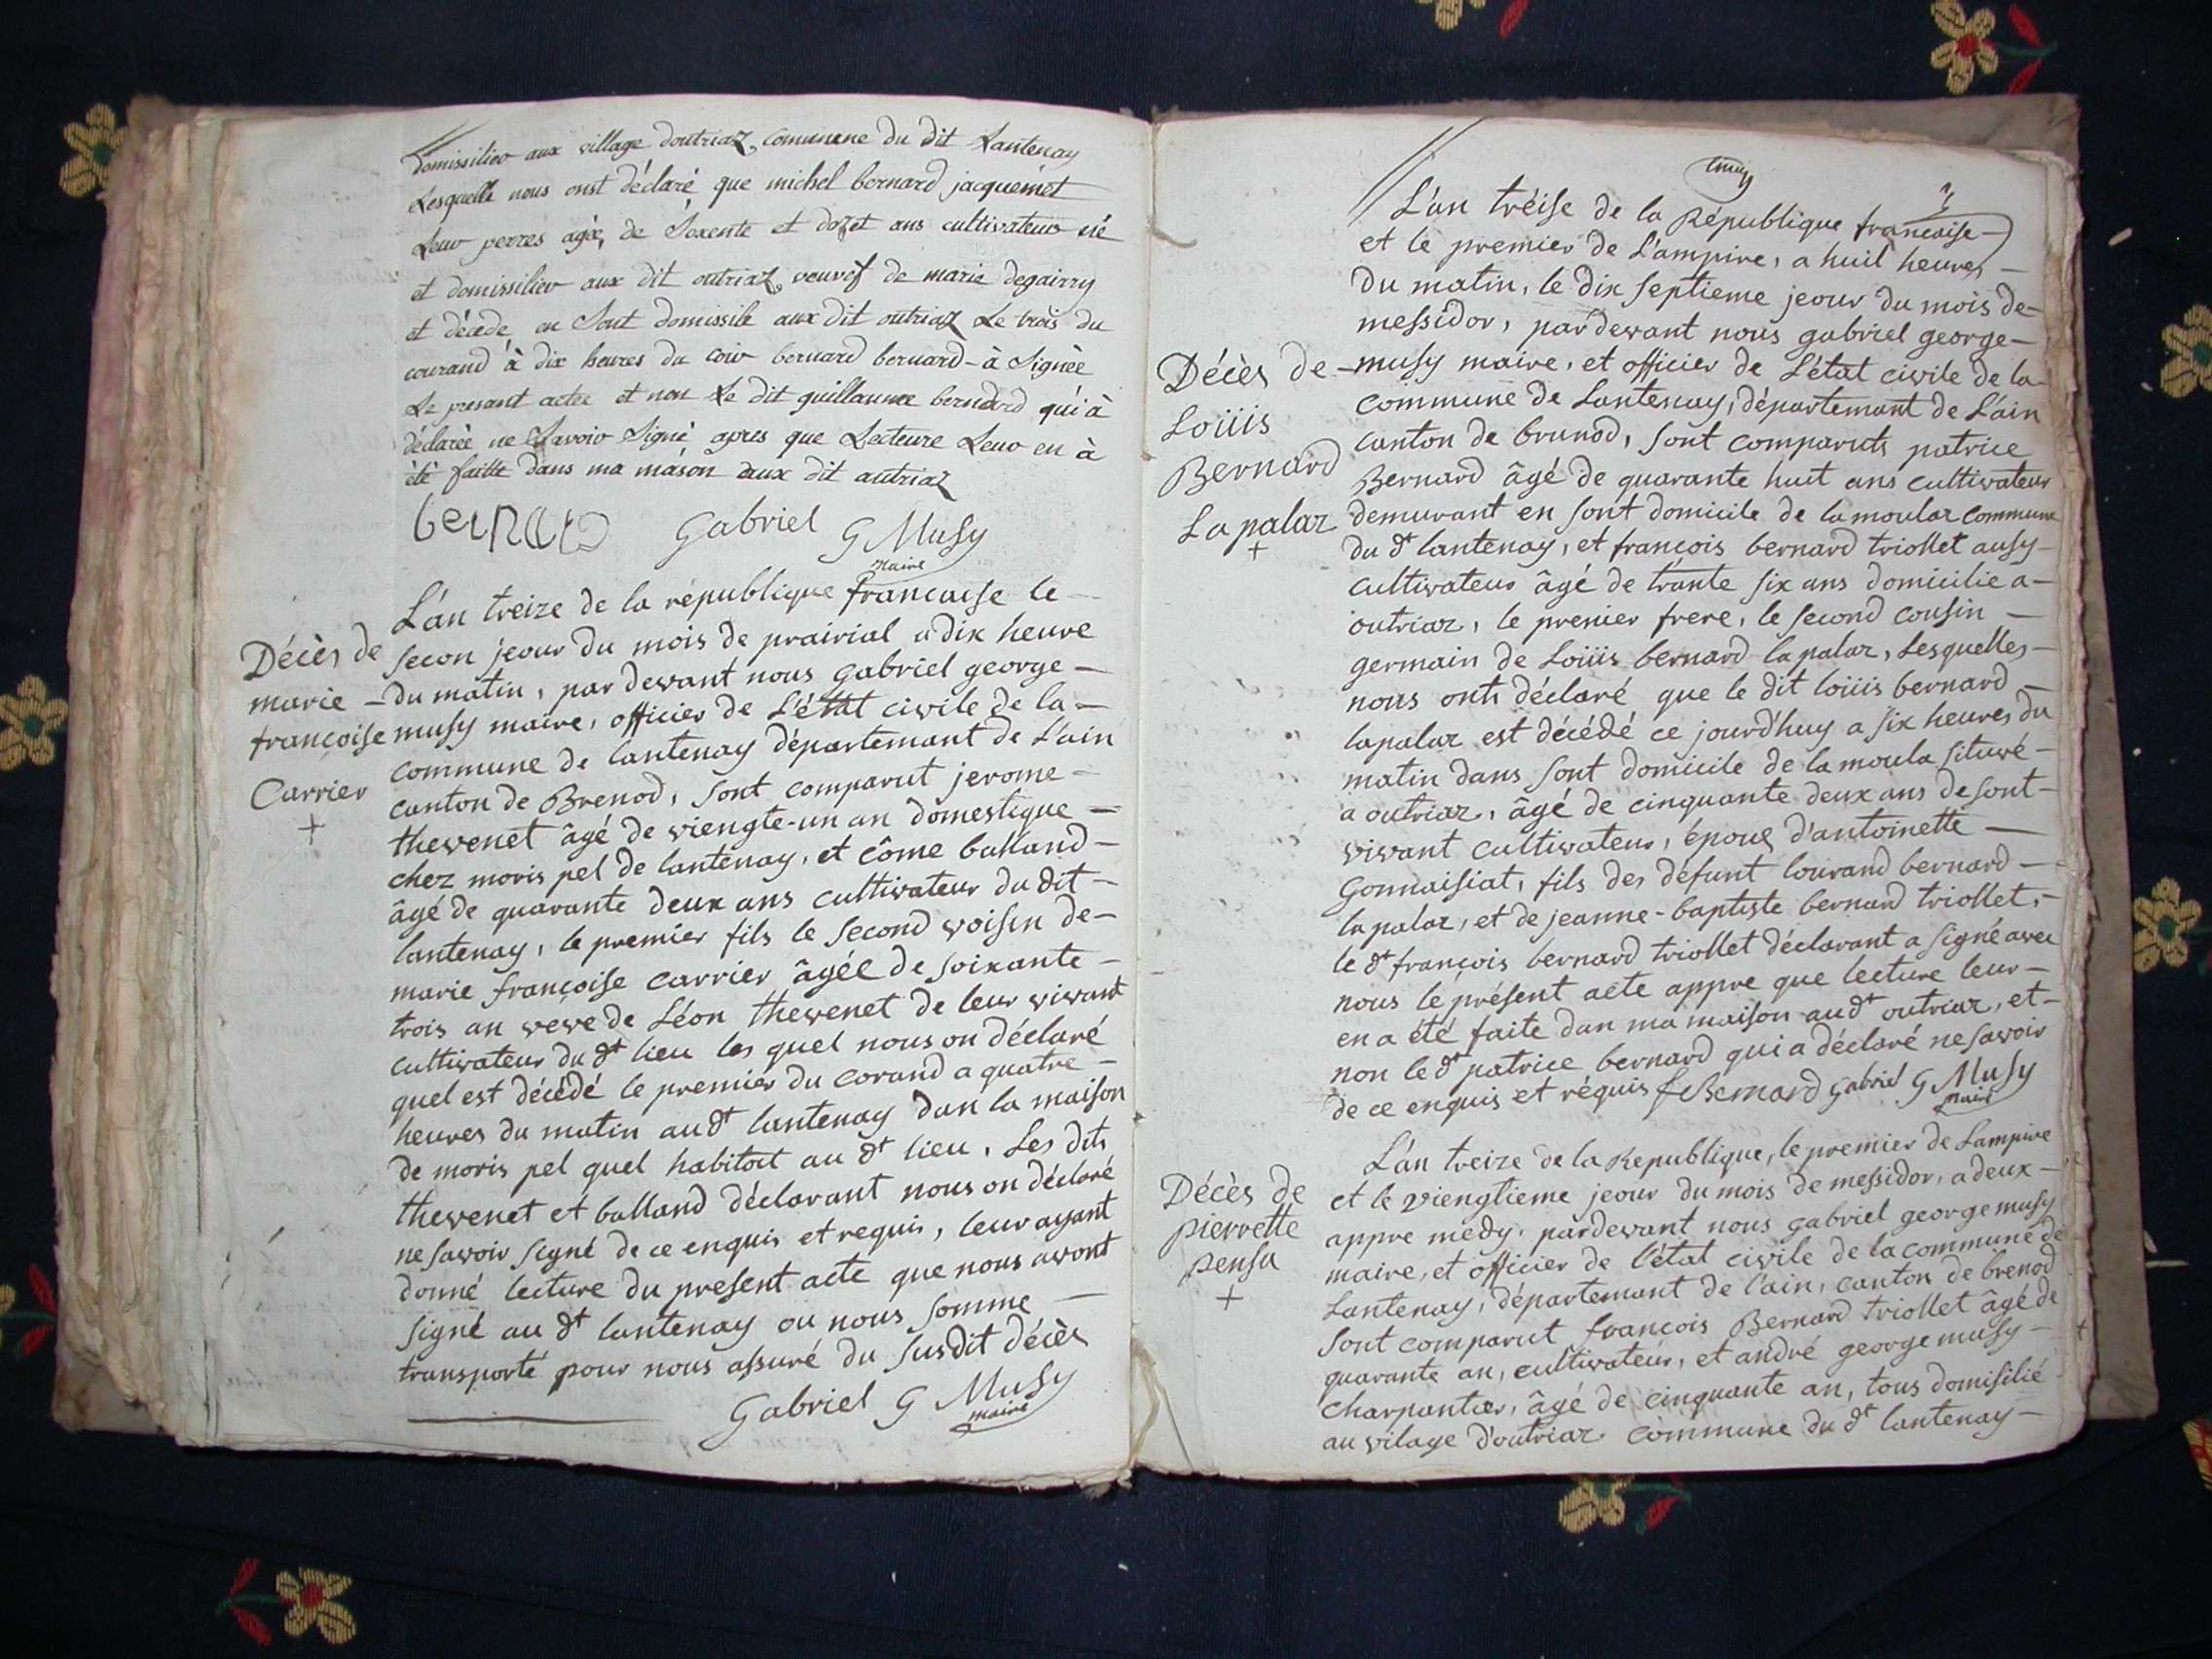 domissilier aux village doutriaz, comunene du dit Lantenay
Lesquelle nous onst déclaré que michel bernard jacquemet
Leur perres agée, de Soxente et dozet ans cultivateur né
et domissilier aux dit outriaz, veuvef de marie degairry
et décede, en Sont domissile aux dit outriaz Le trois du
courand à dix heures du coir bernard bernard - à Signèe
Le presant actee et non Le dit guillaumee bernard qui à
déclarèe ne Savoir Signé apres que Lecteure Leur en à
été faitte dans ma mâson aux dit autriaz
bernard Gabriel G Musy
maire
L'an treize de la république francaise le
Décès de
marie
françoise
Carrier
+
secon jeour du mois de prairial a dix heure
du matin, par devant nous gabriel george
musy maire, officier de L'état civile de la
commune de lantenay départemant de L'ain
canton de Brenod, sont comparut jerome
thevenet âgé de viengte-un an domestique
chez moris pel de lantenay, et côme balland
âgé de quarante deux ans cultivateur du dit
lantenay, le premier fils le second voisin de
marie françoise carrier âgée de soixante
trois an veve de Léon thevenet de leur vivant
cultivateur du dt lieu les quel nous on déclaré
quel est décédé le premier du corand a quatre
heures du matin au dt lantenay dan la maison
de moris pel quel habitoit au dt lieu. Les dits
thevenet et balland déclarant nous on déclaré
ne savoir signé de ce enquis et requis, leur ayant
donné lecture du present acte que nous avont
signé au dt lantenay ou nous somme
transporté pour nous assuré du susdit décès
Gabriel G Musy
maire
L'an tréise de la République francaise
et le premier de L'ampire, a huit heures
du matin, le dix septieme jeour du mois de
messidor, pardevant nous gabriel george
Décès de
Loüis
Bernard
Lapalaz
+
musy maire, et officier de L'état civile de la
commune de Lantenay, départemant de L'ain
canton de brunod, sont comparuts patrice
Bernard âgé de quarante huit ans cultivateur
demurant en sont domicile de la moulaz commune
du dt lantenay, et françois bernard triollet ausy
cultivateur âgé de trante six ans domicilie a
outriaz, le premier frere, le second cousin
germain de Loüis bernard lapalaz, Lesquelles
nous onts déclaré que le dit loüis bernard
lapalaz est décédé ce jourd'huy a six heures du
matin dans sont domicile de la moula situvé
a outriaz, âgé de cinquante deux ans de sont
vivant cultivateur, épous d'antoinette
Gonnaisiat, fils des défunt lourand bernard
lapalaz, et de jeanne-baptiste bernard triollet,
le dt françois bernard triollet déclarant a signé avec
nous le présent acte appre que lecture leur
en a été faite dan ma maison au dt outriaz, et
non le dt patrice bernard qui a déclaré ne savoir
de ce enquis et réquis f Bernard Gabriel G Musy
maire
L'an treize de la Republique, le premier de Lampire
Décès de
pierrette
pensa
+
et le viengtieme jeour du mois de messidor, a deux
appre medy. pardevant nous gabriel george musy
maire, et officier de l'état civile de la commune de
Lantenay, départemant de l'ain, canton de brenod
sont comparut françois Bernard triollet âgé de
quarante an, cultivateur, et andré george musy
charpantier, âgé de cinquante an, tous domisilié
au vilage d'outriaz commune du dt lantenay